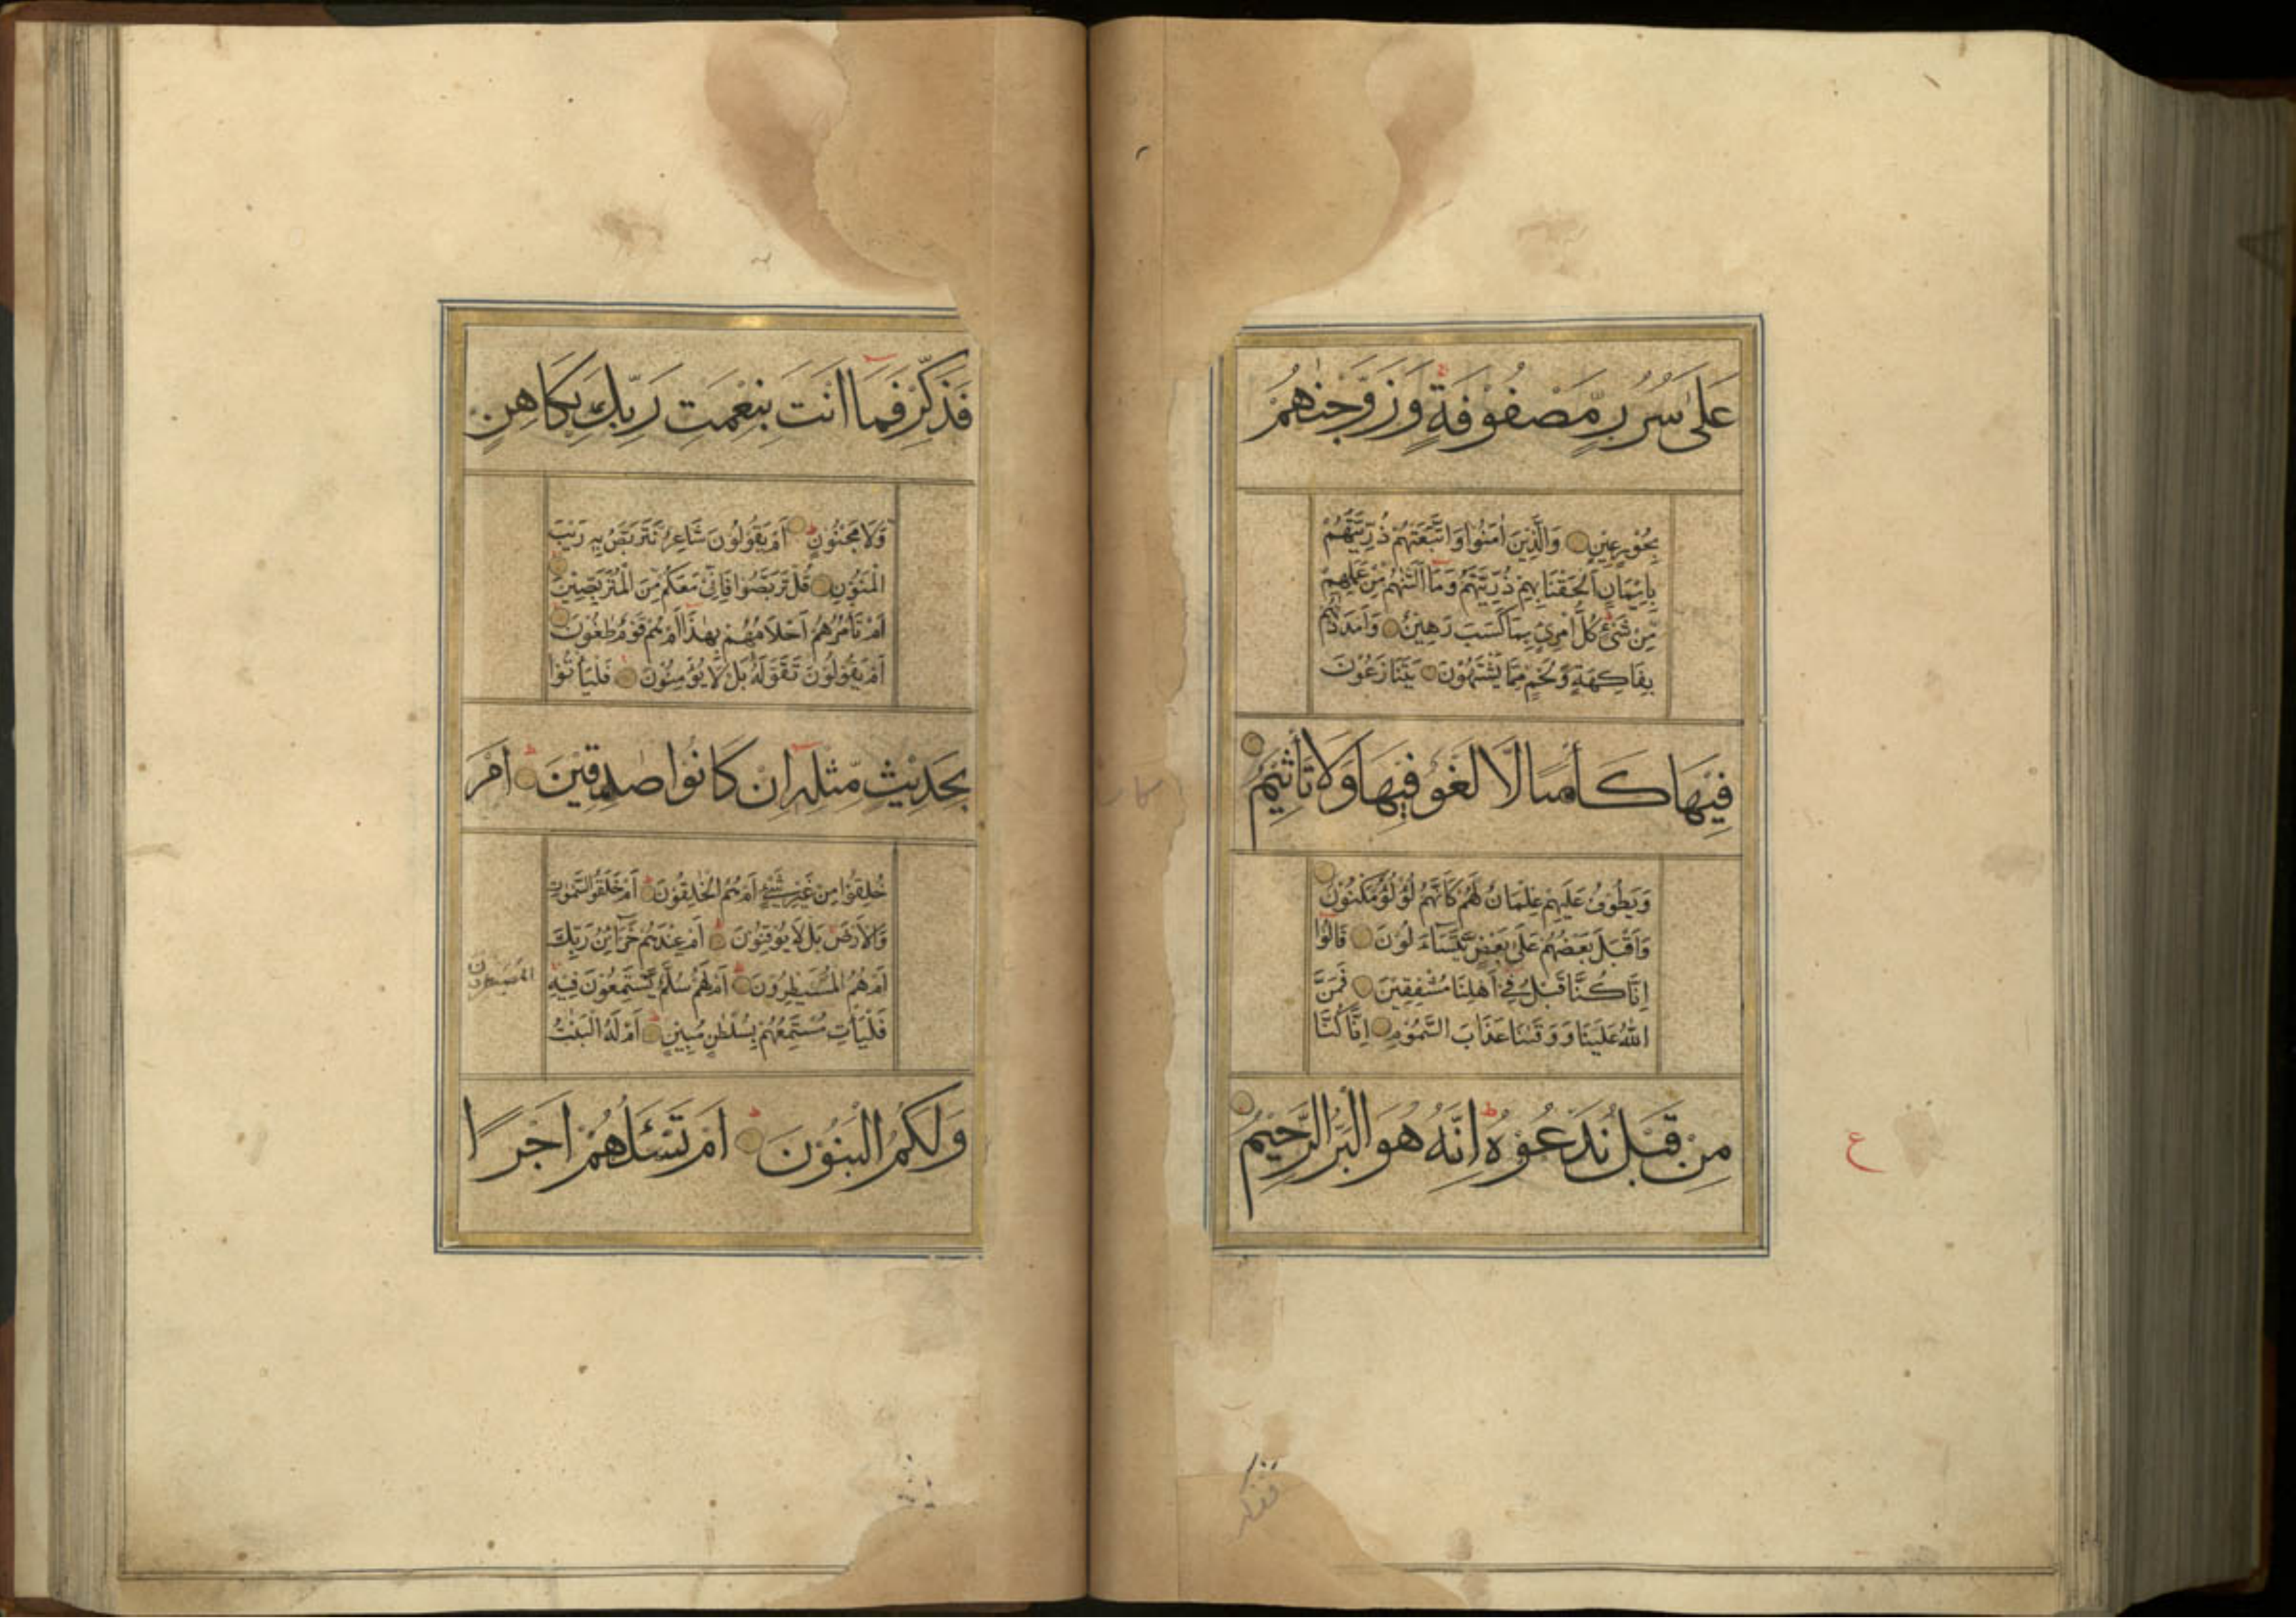 عَلٰى سُرُرٍ مَّصْفُوْفَةٍ ط وَزَوَّجْنٰهُمْ
بِحُوْرٍ عِيْنٍ وَالَّذِيْنَ اٰمَنُوْا وَاتَّبَعَتْهُمْ ذُرِّيَّتُهُمْ
بِاِيْمَانٍ اَلْحَقْنَا بِهِمْ ذُرِّيَّتَهُمْ وَمَا اَلَتْنٰهُمْ مِّنْ عَمَلِهِمْ
مِّنْ شَيْءٍ ط كُلُّ امْرِئٍ بِمَا كَسَبَ رَهِيْنٌ وَاَمْدَدْنٰهُمْ
بِفَاكِهَةٍ وَّلَحْمٍ مِّمَّا يَشْتَهُوْنَ يَتَنَازَعُوْنَ
فِيْهَا كَأْسًا لَّا لَغْوٌ فِيْهَا وَلَا تَأْثِيْمٌ
وَيَطُوْفُ عَلَيْهِمْ غِلْمَانٌ لَّهُمْ كَاَنَّهُمْ لُؤْلُؤٌ مَّكْنُوْنٌ
وَاَقْبَلَ بَعْضُهُمْ عَلٰى بَعْضٍ يَّتَسَآءَلُوْنَ قَالُوْا
اِنَّا كُنَّا قَبْلُ فِيْ اَهْلِنَا مُشْفِقِيْنَ فَمَنَّ
اللّٰهُ عَلَيْنَا وَوَقٰىنَا عَذَابَ السَّمُوْمِ اِنَّا كُنَّا
مِنْ قَبْلُ نَدْعُوْهُ ط اِنَّهُ هُوَ الْبَرُّ الرَّحِيْمُ
ع
فذكر
فَذَكِّرْ فَمَا اَنْتَ بِنِعْمَتِ رَبِّكَ بِكَاهِنٍ
وَّلَا مَجْنُوْنٍ ط اَمْ يَقُوْلُوْنَ شَاعِرٌ نَّتَرَبَّصُ بِهٖ رَيْبَ
الْمَنُوْنِ قُلْ تَرَبَّصُوْا فَاِنِّيْ مَعَكُمْ مِّنَ الْمُتَرَبِّصِيْنَ ط
اَمْ تَأْمُرُهُمْ اَحْلَامُهُمْ بِهٰذَا اَمْ هُمْ قَوْمٌ طَاغُوْنَ
اَمْ يَقُوْلُوْنَ تَقَوَّلَهٗ بَلْ لَّا يُؤْمِنُوْنَ فَلْيَأْتُوْا
بِحَدِيْثٍ مِّثْلِهٖ اِنْ كَانُوْا صٰدِقِيْنَ ط اَمْ
خُلِقُوْا مِنْ غَيْرِ شَيْءٍ اَمْ هُمُ الْخٰلِقُوْنَ ط اَمْ خَلَقُوا السَّمٰوٰتِ
وَالْاَرْضَ بَلْ لَّا يُوْقِنُوْنَ ط اَمْ عِنْدَهُمْ خَزَآئِنُ رَبِّكَ
اَمْ هُمُ الْمُسَيْطِرُوْنَ ط اَمْ لَهُمْ سُلَّمٌ يَّسْتَمِعُوْنَ فِيْهِ
فَلْيَأْتِ مُسْتَمِعُهُمْ بِسُلْطٰنٍ مُّبِيْنٍ ط اَمْ لَهُ الْبَنٰتُ
وَلَكُمُ الْبَنُوْنَ ط اَمْ تَسْئَلُهُمْ اَجْرًا